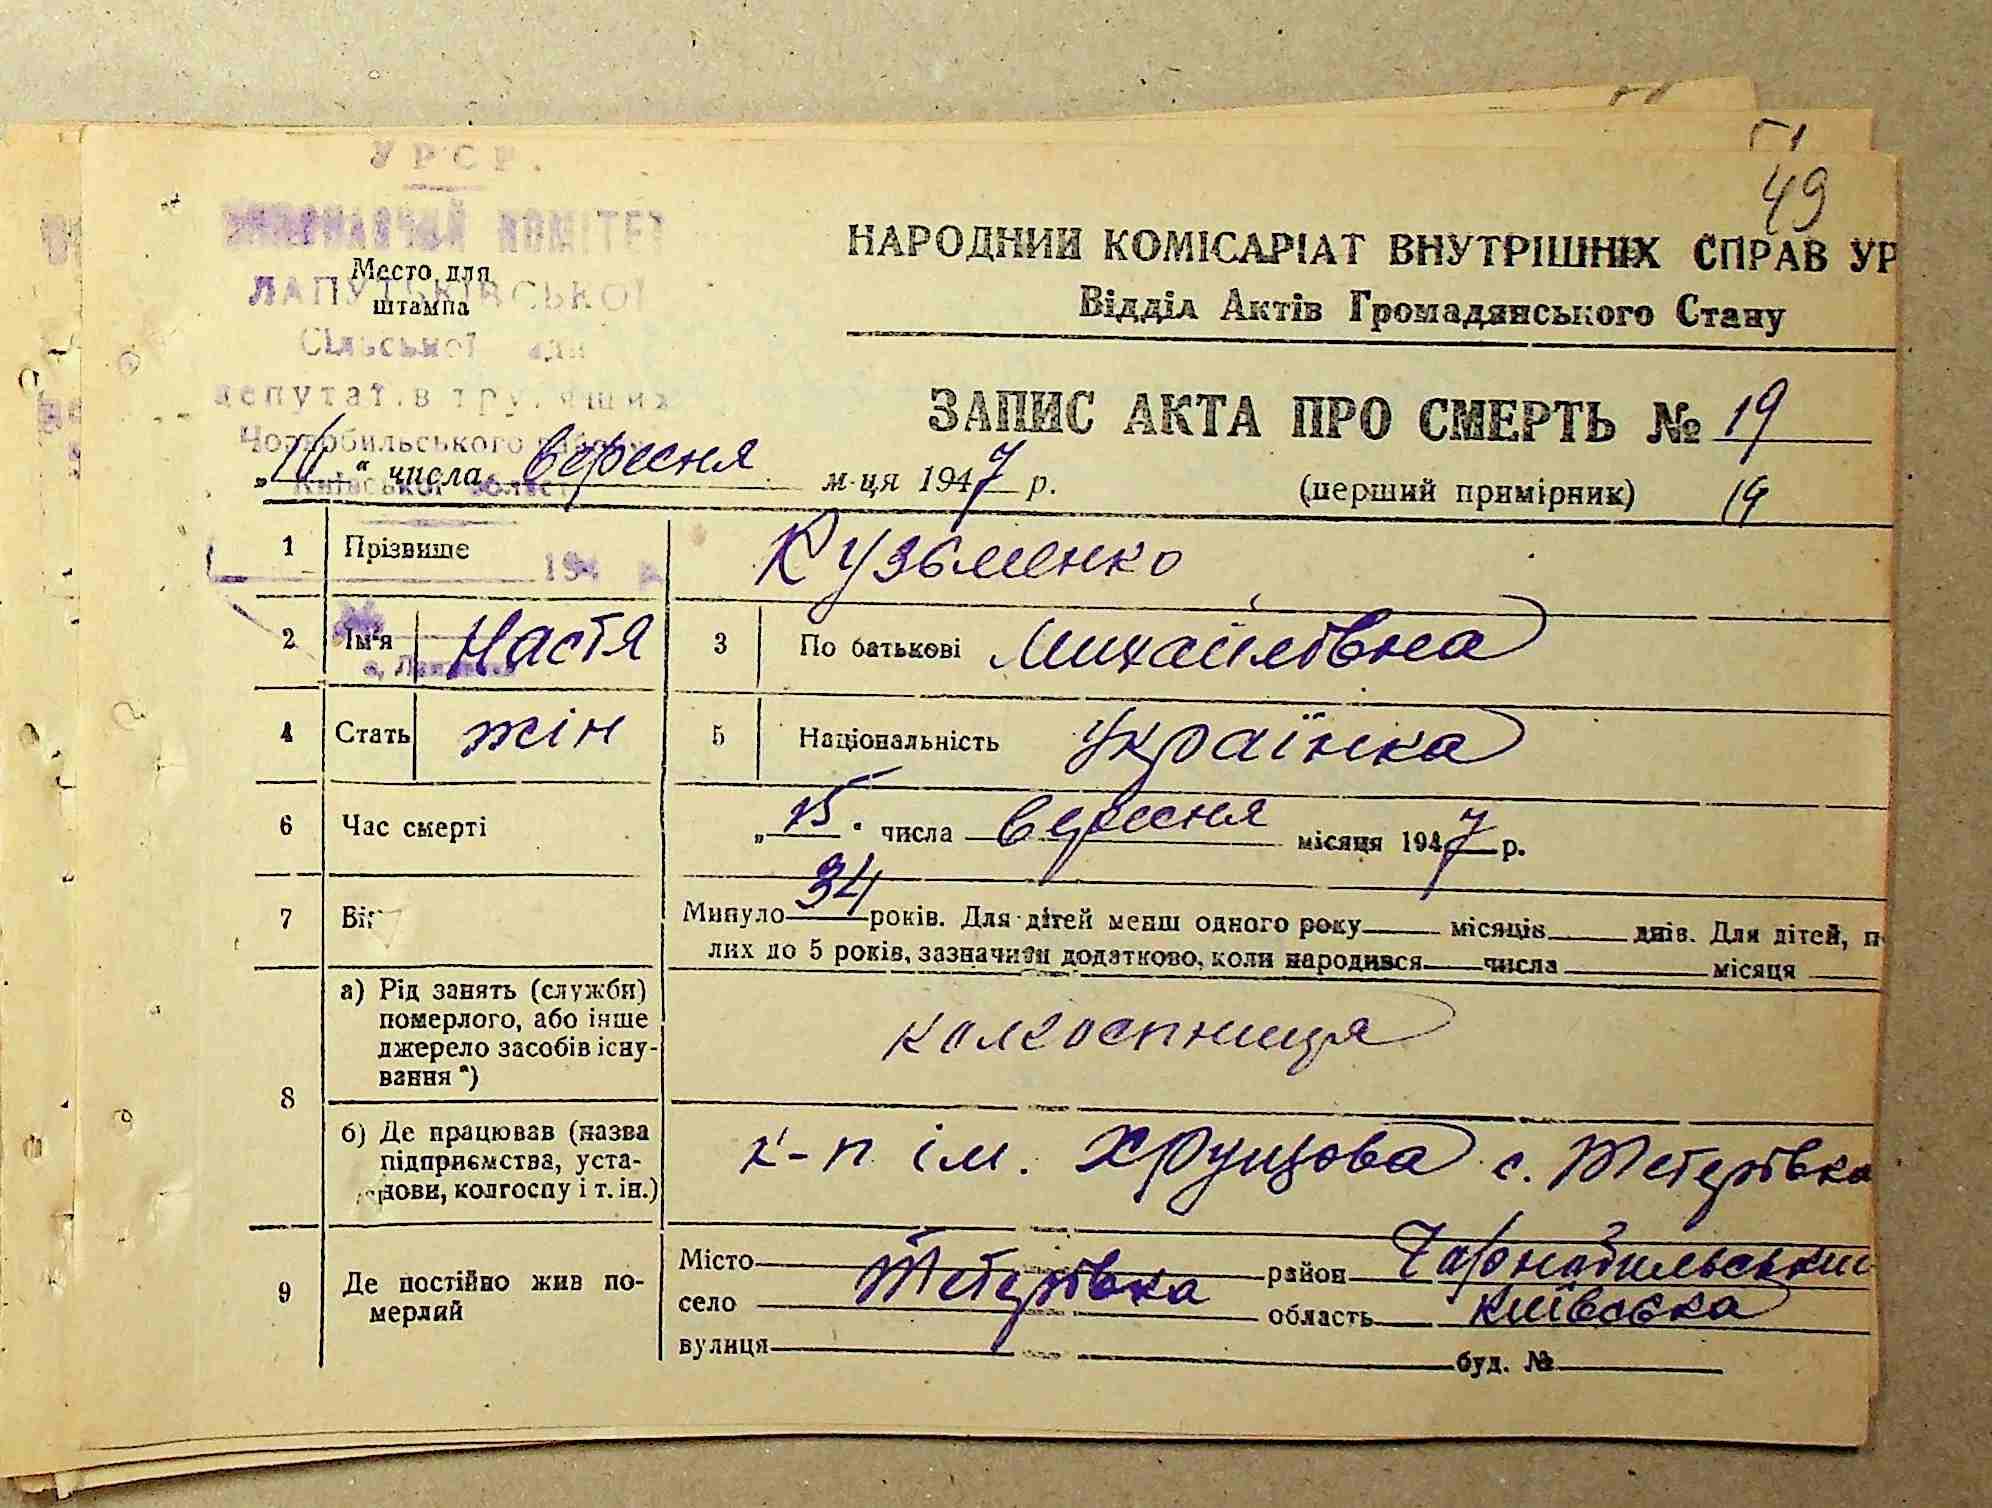 51
49
У Р С Р.
ВИКОНАВЧИЙ КОМІТЕТ
Место для
штампа
ЛАПУТЬКІВСЬКОЇ
Сільської
депутатів трудящих
Чорнобильського
Київської област
НАРОДНИЙ КОМІСАРІАТ ВНУТРІШНІХ СПРАВ УР
Відділ Актів Громадянського Стану
ЗАПИС АКТА ПРО СМЕРТЬ № 19
„16“ числа вересня м-ця 1947 р.
(перший примірник) 19
1 Прізвище Кузьменко
194
2 Ім'я Настя 3 По батькові Михайлівна
4 Стать жін 5 Національність Українка
6 Час смерті „15“ числа вересня місяця 1947 р.
7 Вік Минуло 34 років. Для дітей менш одного року місяців днів. Для дітей, п
лих до 5 років, зазначити додатково, коли народився числа місяця
8 а) Рід занять (службн)
померлого, або інше
джерело засобів існу-
вання *)
колхоспниця
б) Де працював (назва
підприємства, уста-
нови, колгоспу і т. ін.)
к-п ім. Хрущова с. Тетерівка
9 Де постійно жив по-
мерлий
Місто район Чорнобильський
село Тетерівка область київська
вулиця буд. №